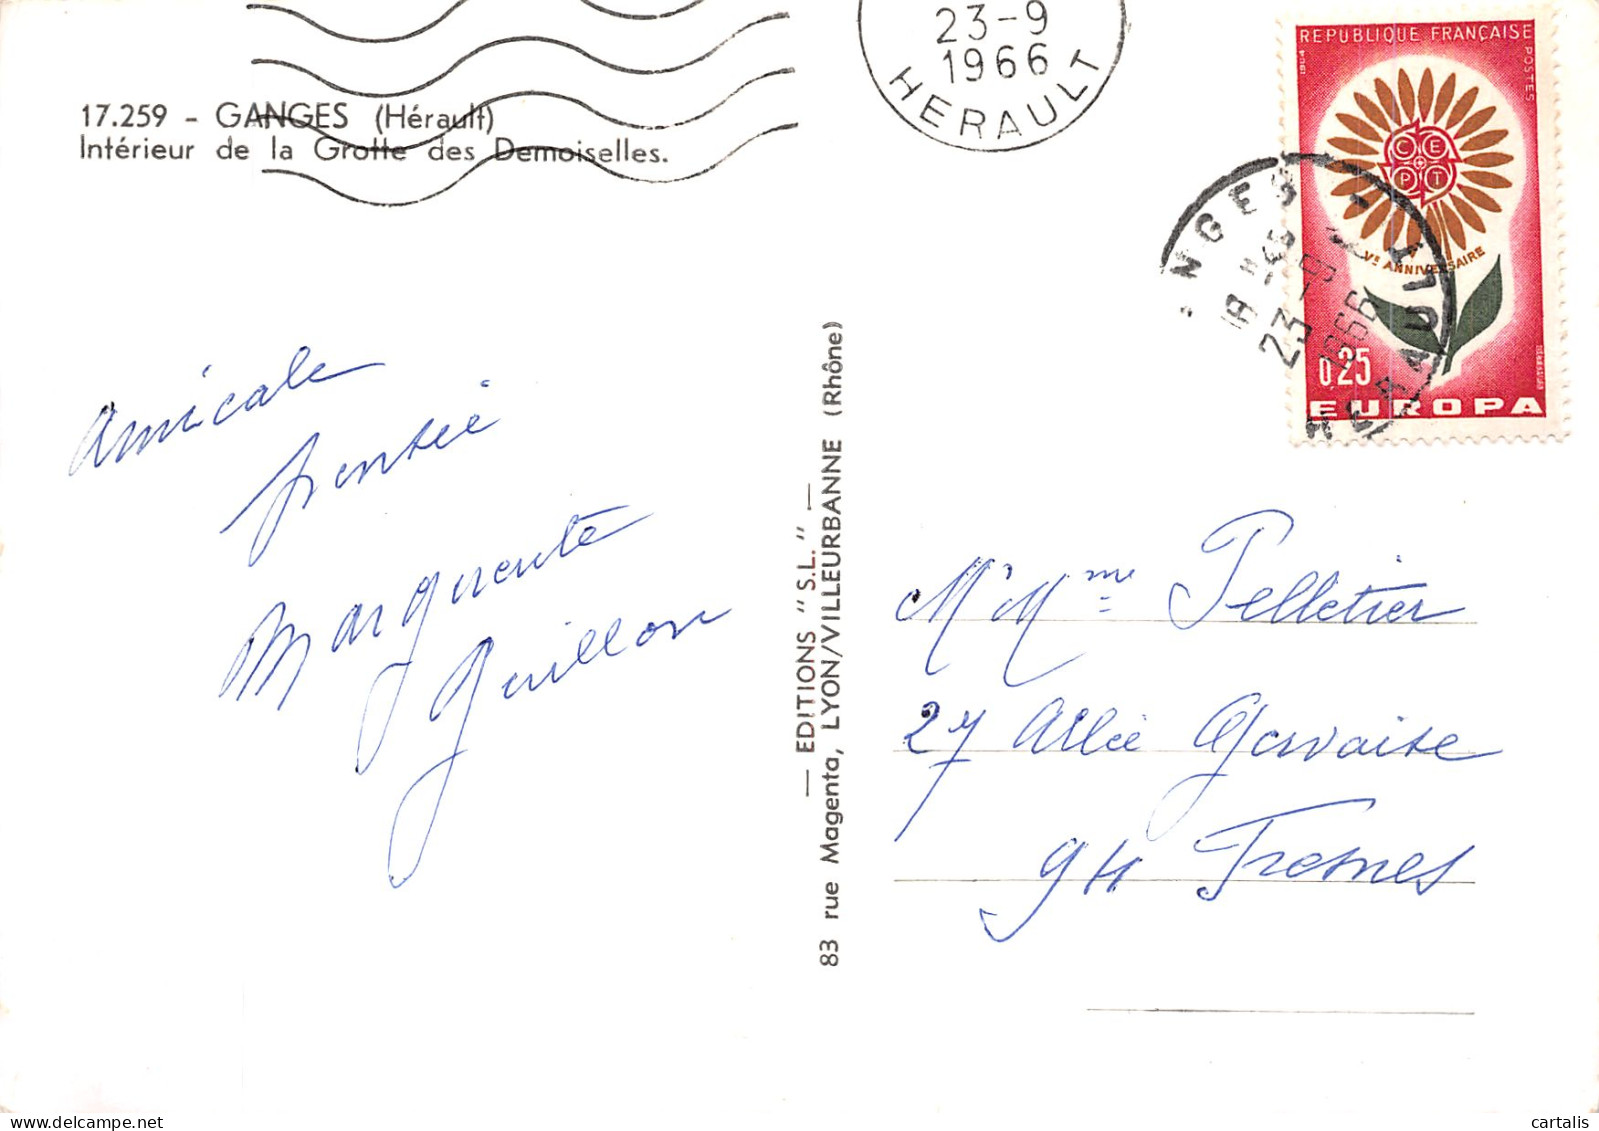 17.259 - GANGES (Hérault)
Intérieur de la Grotte des Demoiselles.
23-9
1966
HERAULT
REPUBLIQUE FRANÇAISE
POSTES
1964
C E
P T
Ve ANNIVERSAIRE
0,25
EUROPA
NGES - HERAULT
18 H
23-9
1966
amicale
pensée
Marguerite
Guillon
— EDITIONS "S.L." —
83 rue Magenta, LYON/VILLEURBANNE (Rhône)
M' Mme Pelletier
27 Allée Gervaise
94 Fresnes
cartalis